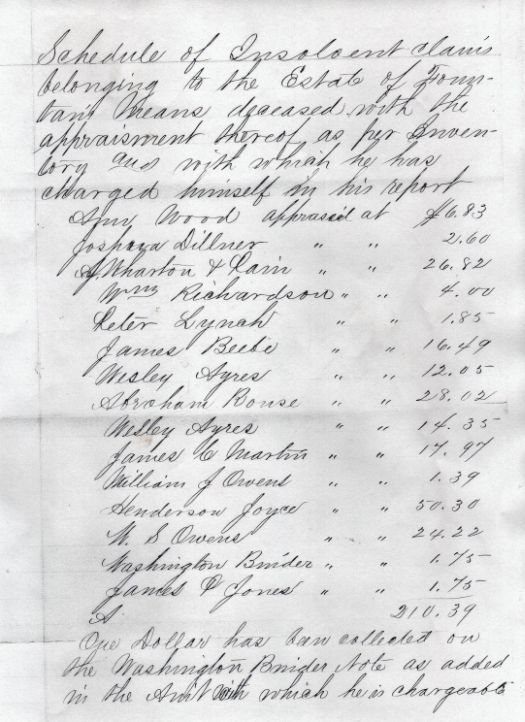 Schedule of Insolvent claims
belonging to the Estate of Foun-
tain Means deceased with the
appraisment thereof as per Inven-
tory and with which he has
charged himself in his report
Ann Wood appraised at $6.83
Joshua Dillner " " 2.60
Wharton & Cain " " 26.82
Wm Richardson " " 4.00
Peter Lynch " " 1.85
James Beebe " " 16.49
Wesley Ayres " " 12.05
Abraham Rouse " " 28.02
Wesley Ayres " " 14.35
James C Martin " " 17.97
William J Owens " " 1.39
Henderson Joyce " " 50.30
W. S Owens " " 24.22
Washington Bnider " " 1.75
James P Jones " " 1.75
210.39
One Dollar has ben collected on
the Washington Bnider Note as added
in the Amt with which he is chargeable